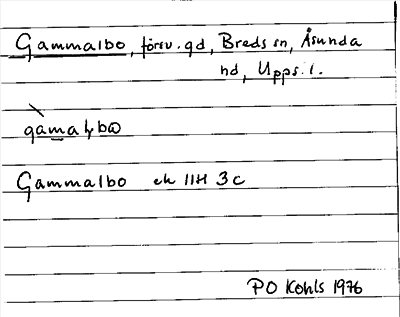 Gammalbo, försv. gd, Breds sn, Åsunda
hd, Upps. l.
Gammalbo ek 11H 3c
PO Kohls 1976